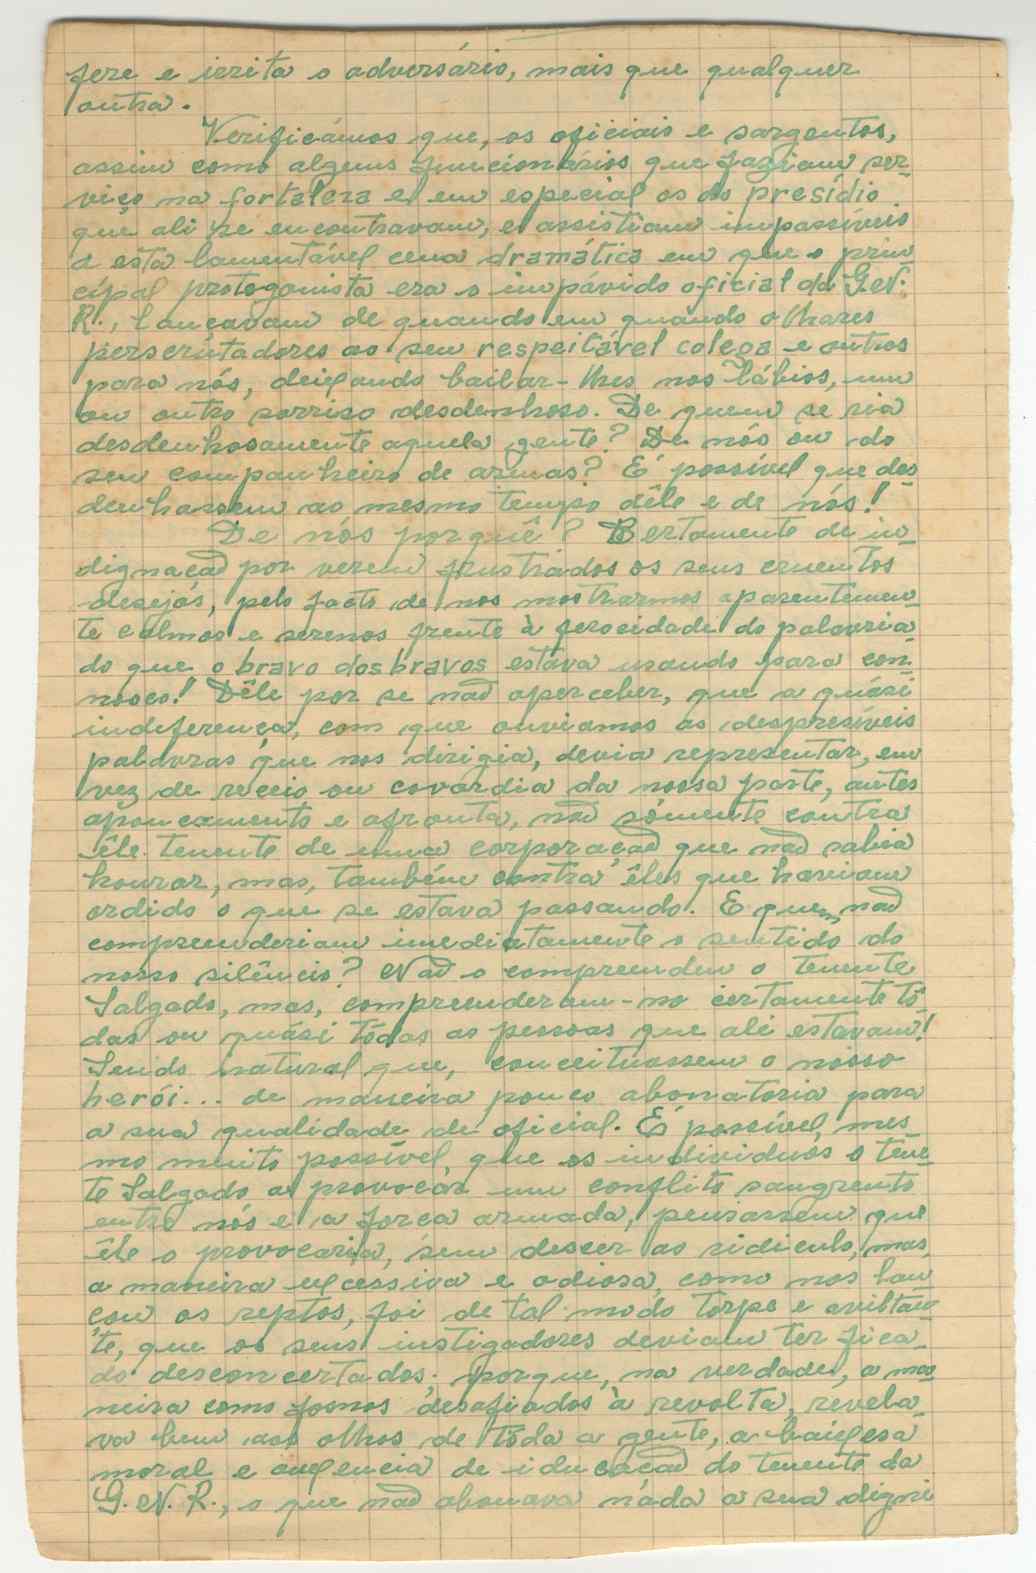 fere e irrita o adversário, mais que qualquer
outra.
Verificámos que, os oficiais e sargentos,
assim como alguns funcionários que faziam ser-
viço na fortaleza e em especial os do presídio
que ali se encontravam, e assistiam impassíveis
a esta lamentável cena dramática em que o prin
cipal protogonista era o impávido oficial da G.N.
R., lançavam de quando em quando olhares
perscrutadores ao seu respeitável colega e outros
para nós, deixando bailar-lhes nos lábios, um
ou outro sorriso desdenhoso. De quem se ria
desdenhosamente aquela gente? De nós ou do
seu companheiro de armas? É possível que des-
denhassem ao mesmo tempo dêle e de nós!
De nós porquê? Certamente de in-
dignação por verem frustrados os seus cruentos
desejos, pelo facto de nos mostrarmos aparentemen-
te calmos e serenos frente à ferocidade do palavria-
do que o bravo dos bravos estava usando para con-
nosco! Dêle por se não aperceber, que a quási
indiferença, com que ouviamos as despresíveis
palavras que nos dirigia, devia representar, em
vez de receio ou covardia da nossa parte, antes
apoucamento e afronta, não sómente contra
êle tenente de uma corporação que não sabia
honrar, mas, também contra êles que haviam
ordido o que se estava passando. E quem não
compreenderiam imediatamente o sentido do
nosso silêncio? Não o compreendeu o tenente
Salgado, mas, compreenderam-no certamente tô
das ou quási tôdas as pessoas que ali estavam!
Sendo natural que, conceituassem o nosso
herói... de maneira pouco abonatoria para
a sua qualidade de oficial. É possível, mes
mo muito possível, que os individuos o tenen-
te Salgado a provocar um conflito sangrento
entre nós e a força armada, pensassem que
êle o provocaria, sem descer ao ridiculo, mas,
a maneira excessiva e odiosa, como nos lan
çou os reptos, foi de tal modo torpe e aviltan
te, que os seus instigadores deviam ter fica-
do desconcertados; porque, na verdade, a ma-
neira como fomos desafiados à revolta, revela-
va bem aos olhos de tôda a gente, a baixesa
moral e auxencia de educação do tenente da
G.N.R., o que não abonava nada a sua digni